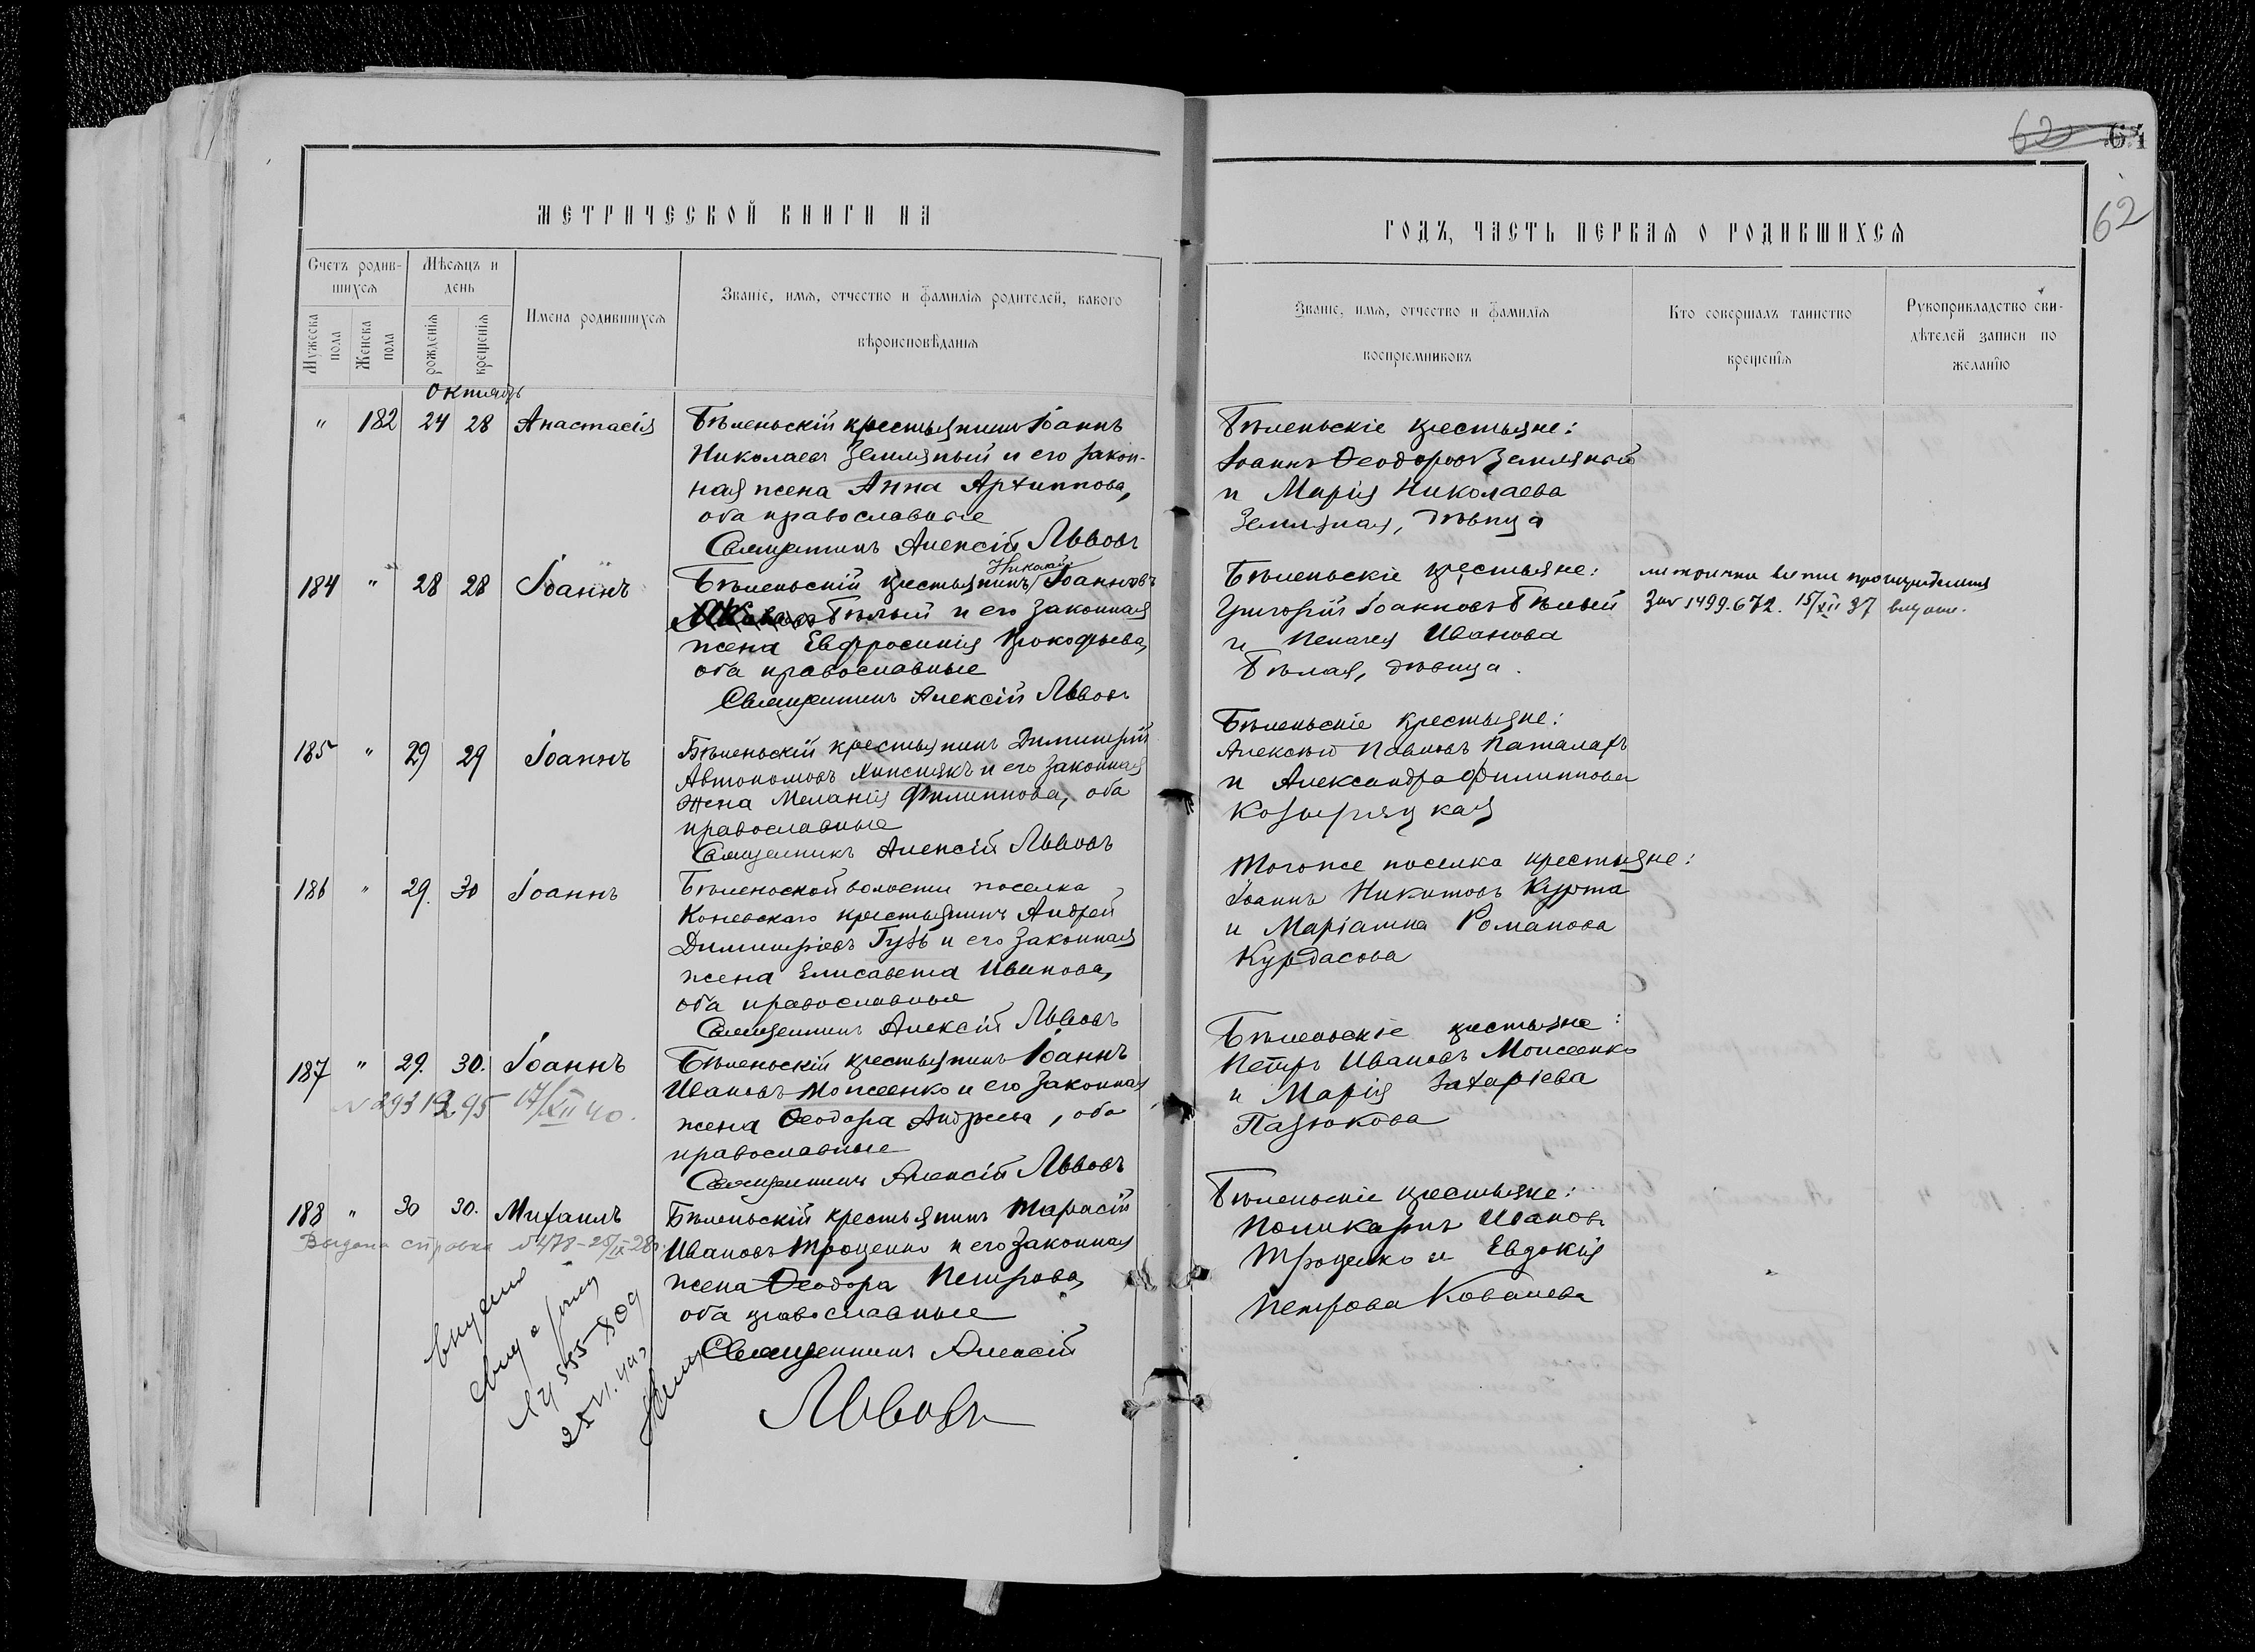 62 64
62
МЕТРИЧЕСКОЙ КНИГИ НА
ГОДЪ, ЧАСТЬ ПЕРВАЯ О РОДИВШИХСЯ
Счетъ родив-
шихся
Мѣсяцъ и
день
Мужеска
пола
Женска
пола
рожденія
крещенія
Имена родившихся
Званіе, имя, отчество и фамилія родителей, какого
вѣроисповѣданія
Званіе, имя, отчество и фамилія
воспріемниковъ
Кто совершалъ таинство
крещенія
Рукоприкладство сви-
дѣтелей записи по
желанію
Октябрь
" 182 24 28 Анастасія
Бѣленьскій крестьянинъ Іоаннъ
Николаевъ Земляный и его закон-
ная жена Анна Архиппова,
оба православные
Священникъ Алексій Львовъ
Бѣленьскіе крестьяне:
Іоаннъ Ѳеодоровъ Земляной
и Марія Николаева
Земляная, дѣвица
184 " 28 28 Іоаннъ
Николай
Бѣленьскій крестьянинъ Іоанновъ
Бѣлый и его законная
жена Евфросинія Прокофьева,
оба православные
Священникъ Алексій Львовъ
Бѣленьскіе крестьяне:
Григорій Іоанновъ Бѣлый
и Пелагея Иванова
Бѣлая, дѣвица.
1499.672. 15/XII 37
185 " 29 29 Іоаннъ
Бѣленьскій крестьянинъ Димитрій
Автономовъ и его законная
жена Меланія Филиппова, оба
православные
Священникъ Алексій Львовъ
Бѣленьскіе крестьяне:
Алексѣй Павловъ Паталахъ
и Александра Филиппова
Козыряцкая
186 " 29. 30 Іоаннъ
Бѣленьской волости поселка
Коневскаго крестьянинъ Андрей
Димитріевъ Гузь и его законная
жена Елисавета Иванова,
оба православные
Священникъ Алексій Львовъ
Тогоже поселка крестьяне:
Іоаннъ Никитовъ Курта
и Маріамна Романова
Курдасова
187 " 29. 30. Іоаннъ
17/XII 40.
Бѣленьскій крестьянинъ Іоаннъ
Ивановъ Моисеенко и его законная
жена Ѳеодора Андреева, оба
православные
Священникъ Алексій Львовъ
Бѣленьскіе крестьяне:
Петръ Ивановъ Моисеенко
и Марія Захаріева
Пазюкова
188 " 30 30. Михаилъ
Выдана справка N 478-25/IX-28г.
Бѣленьскій крестьянинъ Тарасій
Ивановъ Троценко и его законная
жена Ѳеодора Петрова,
оба православные
Священникъ Алексій
Львовъ
Бѣленьскіе крестьяне:
Поликарпъ Ивановъ
Троценко и Евдокія
Петрова Ковалева